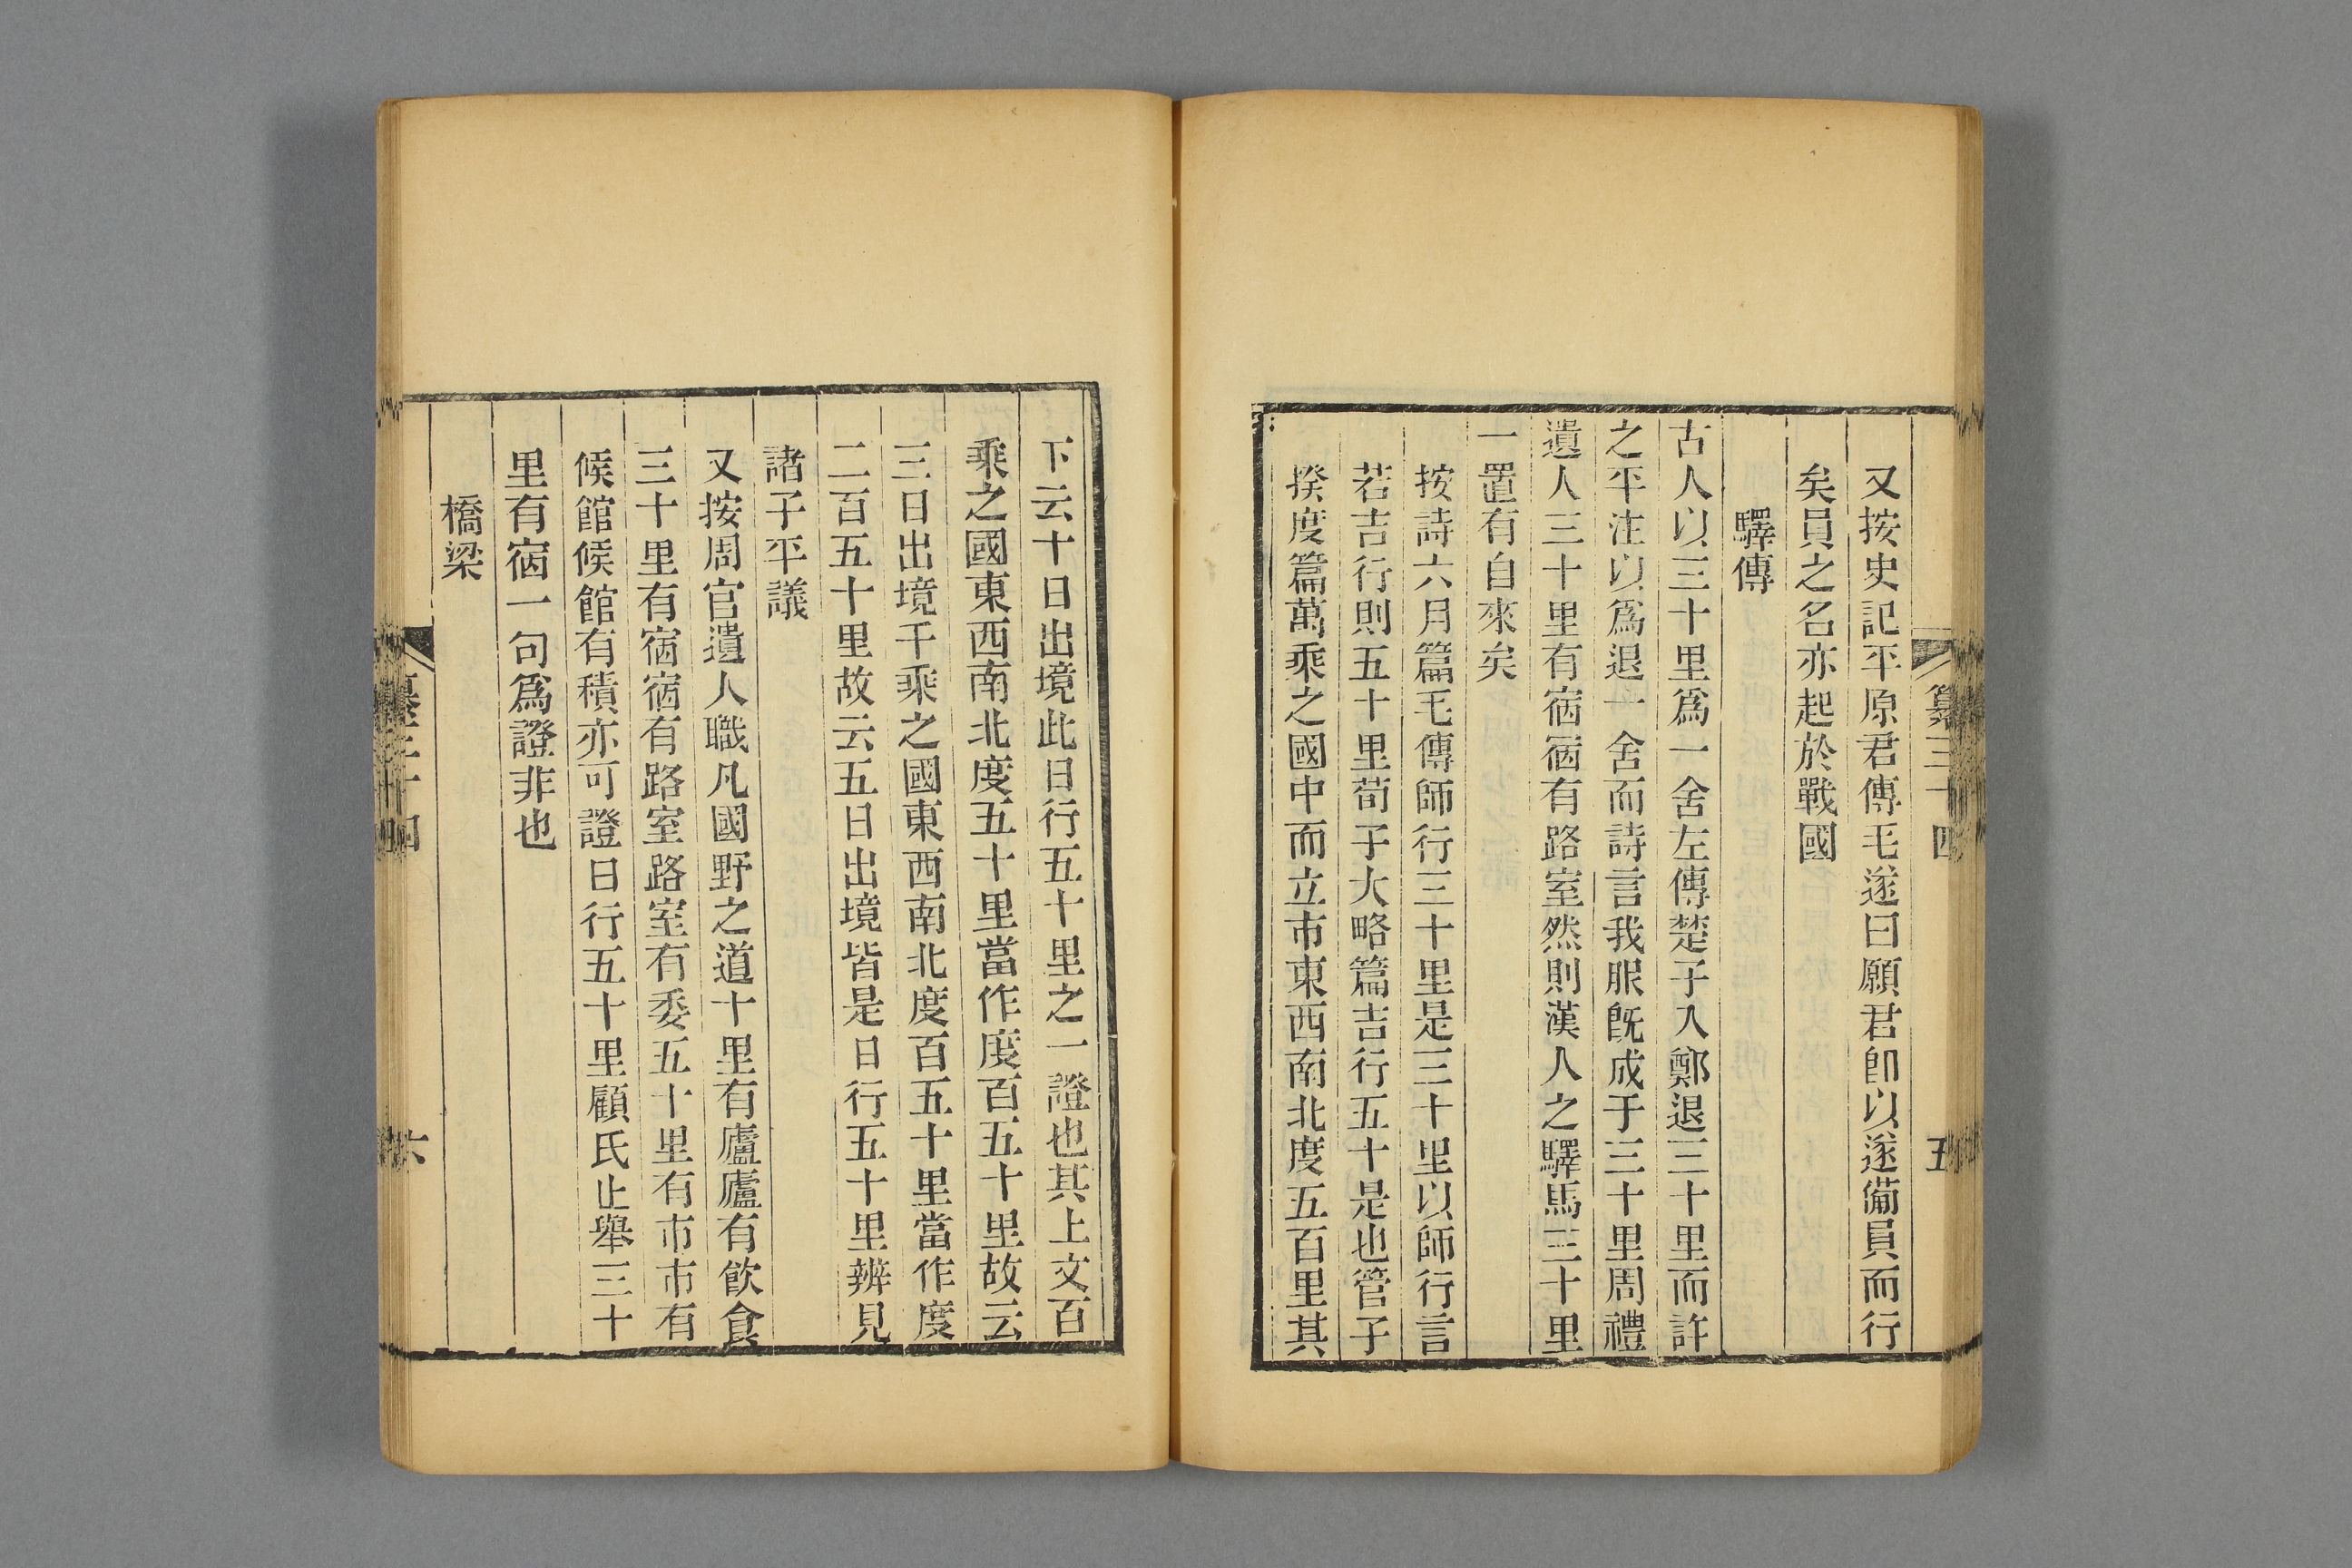 纂三十四
五
又按史記平原君傳毛遂曰願君卽以遂備員而行
矣員之名亦起於戰國
驛傳
古人以三十里爲一舍左傳楚子入鄭退三十里而許
之平注以爲退一舍而詩言我服旣成于三十里周禮
遺人三十里有宿宿有路室然則漢人之驛馬三十里
一置有自來矣
按詩六月篇毛傳師行三十里是三十里以師行言
若吉行則五十里荀子大略篇吉行五十是也管子
揆度篇萬乘之國中而立市東西南北度五百里其
下云十日出境此日行五十里之一證也其上文百
乘之國東西南北度五十里當作度百五十里故云
三日出境千乘之國東西南北度百五十里當作度
二百五十里故云五日出境皆是日行五十里辨見
諸子平議
又按周官遺人職凡國野之道十里有廬廬有飲食
三十里有宿宿有路室路室有委五十里有市市有
候館候館有積亦可證日行五十里顧氏止舉三十
里有宿一句爲證非也
橋梁
纂三十四
六